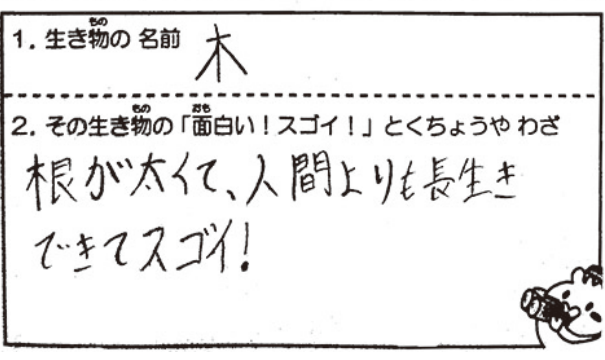 1. 生き物の 名前 木
2. その生き物の「面白い！スゴイ！」とくちょうや わざ
根が太くて、人間よりも長生き
できてスゴイ！